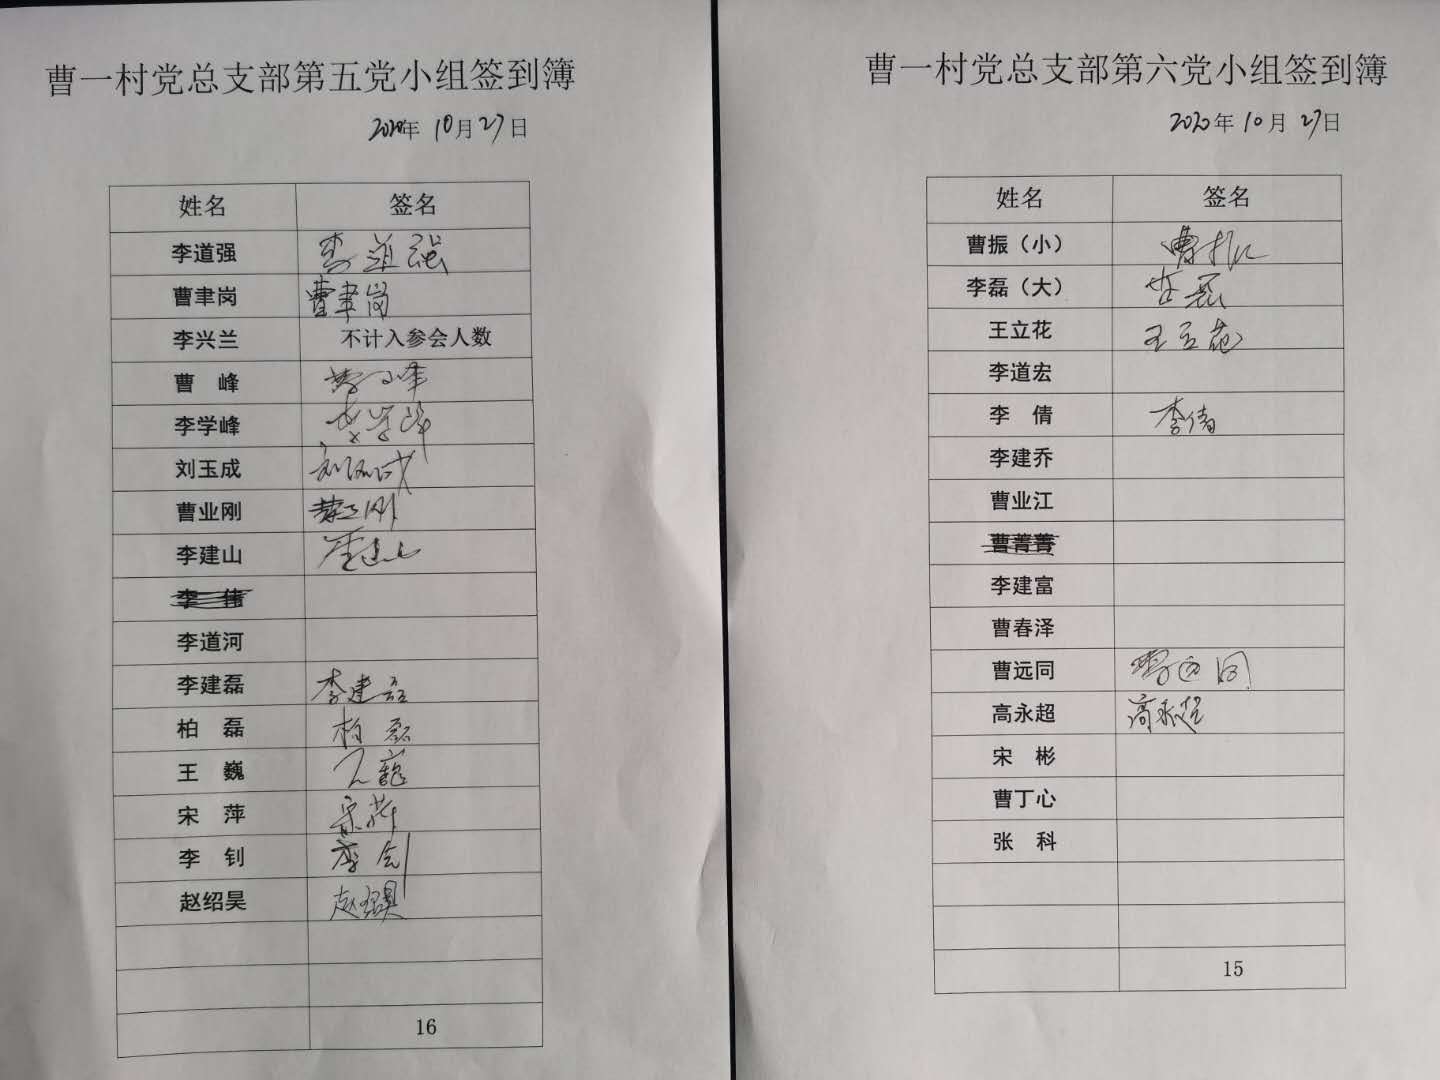 曹一村党总支部第五党小组签到簿
2020年 10月27日
姓名 签名
李道强 李道强
曹聿岗 曹聿岗
李兴兰 不计入参会人数
曹 峰 曹峰
李学峰 李学峰
刘玉成 刘玉成
曹业刚 曹业刚
李建山 李建山
李 伟
李道河
李建磊 李建磊
柏 磊 柏磊
王 巍 王巍
宋 萍 宋萍
李 钊 李钊
赵绍昊 赵绍昊
16
曹一村党总支部第六党小组签到簿
2020年 10月 27日
姓名 签名
曹振（小） 曹振
李磊（大） 李磊
王立花 王立花
李道宏
李 倩 李倩
李建乔
曹业江
曹菁菁
李建富
曹春泽
曹远同 曹远同
高永超 高永超
宋 彬
曹丁心
张 科
15